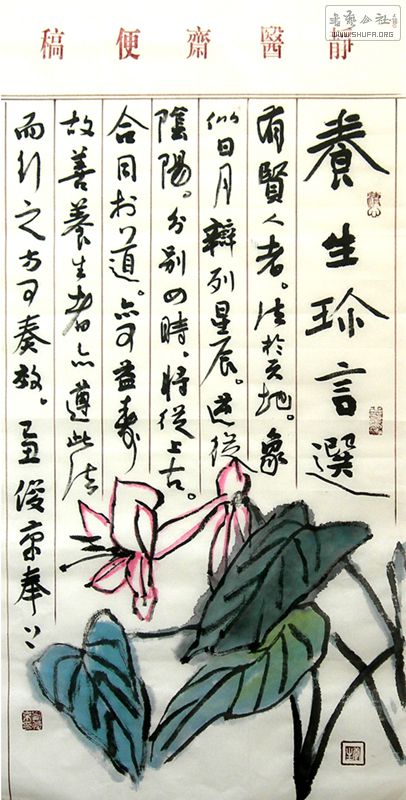 書藝公社
WWW.SHUFA.ORG
靜醫齋便稿
養生珍言選
有賢人者。法於天地。象
似日月辯列星辰。逆從
陰陽。分別四時、將從上古。
合同於道。亦可益壽
故善養生者亦遵此法
而行之方可奏效。乙丑 俊京奉上